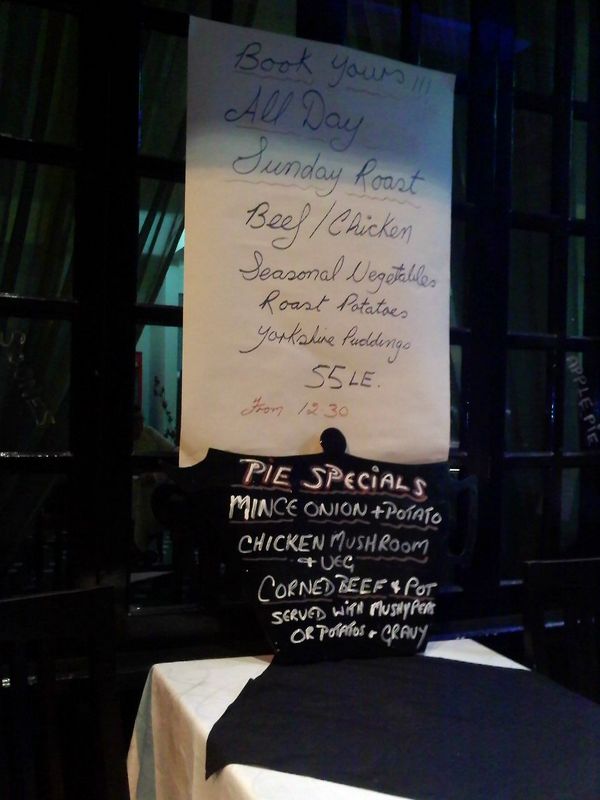 Book Yours !!!
All Day
Sunday Roast
Beef / Chicken
Seasonal Vegetables
Roast Potatoes
Yorkshire Puddings
55 LE.
From 12.30
PIE SPECIALS
MINCE ONION + POTATO
CHICKEN MUSHROOM
+ VEG
CORNED BEEF & POT
SERVED WITH MUSHY PEAS
OR POTATOS + GRAVY
APPLE PIE